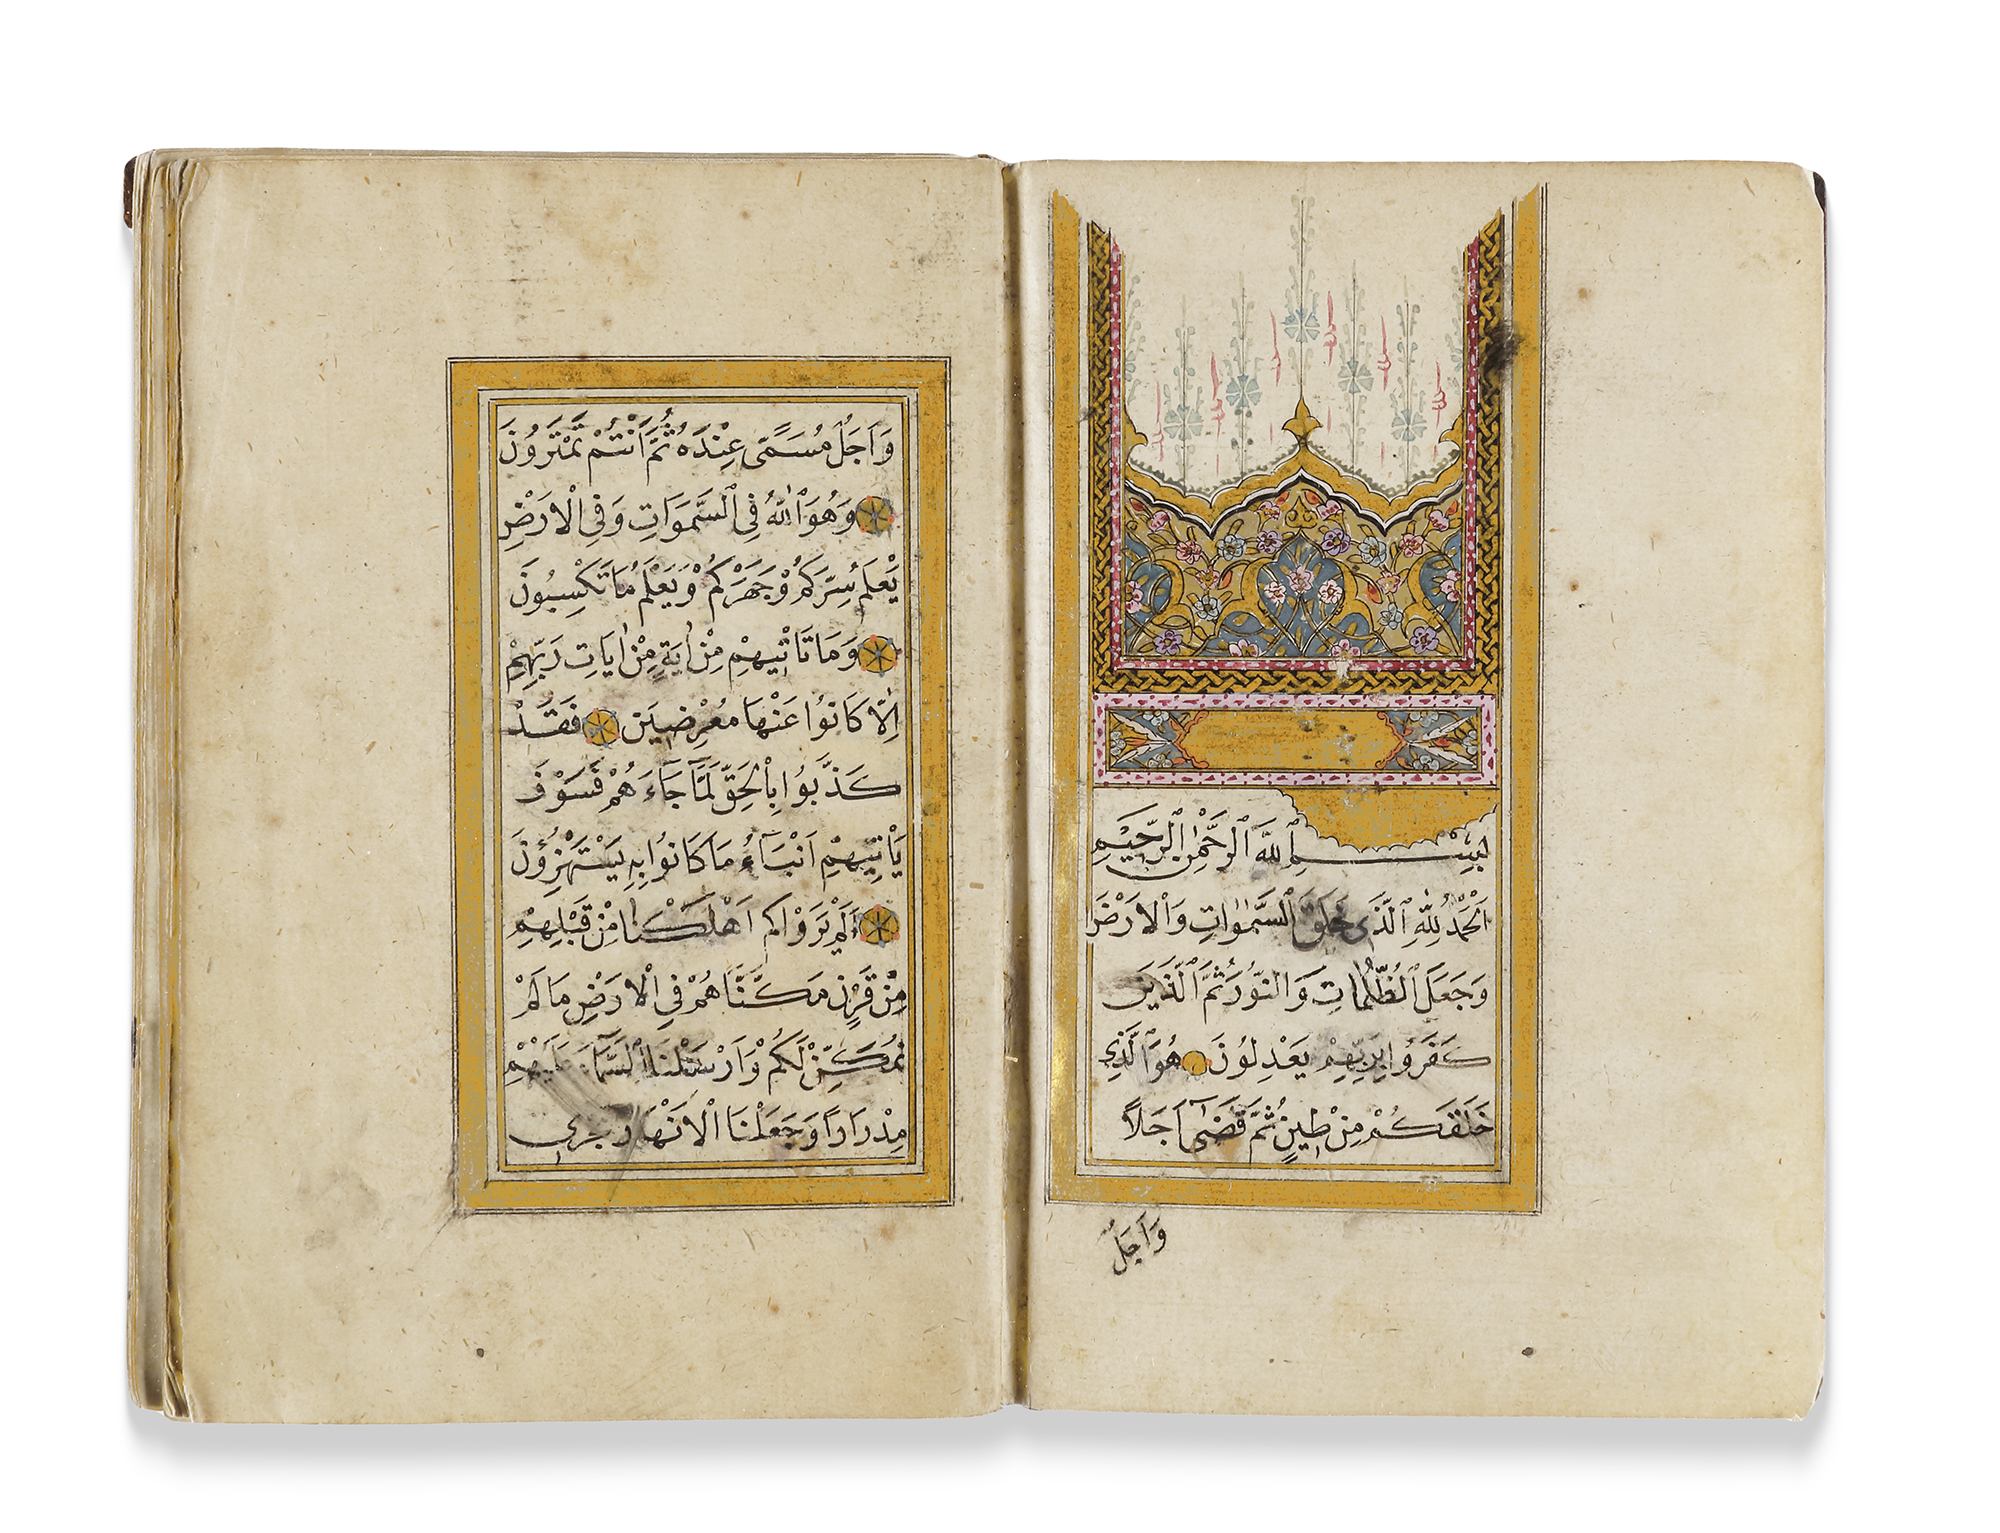 بِسْمِ اللهِ الرَّحْمٰنِ الرَّحِيمِ
اَلْحَمْدُ لِلّٰهِ الَّذِى خَلَقَ السَّمٰوَاتِ وَالْاَرْضَ
وَجَعَلَ الظُّلُمَاتِ وَالنُّورَ ثُمَّ الَّذِينَ
كَفَرُوا بِرَبِّهِمْ يَعْدِلُونَ هُوَ الَّذِى
خَلَقَكُمْ مِنْ طِينٍ ثُمَّ قَضٰى اَجَلًا
وَاَجَلٌ
وَاَجَلٌ مُسَمًّى عِنْدَهُ ثُمَّ اَنْتُمْ تَمْتَرُونَ
وَهُوَ اللهُ فِى السَّمَوَاتِ وَفِى الْاَرْضِ
يَعْلَمُ سِرَّكُمْ وَجَهْرَكُمْ وَيَعْلَمُ مَا تَكْسِبُونَ
وَمَا تَاْتِيهِمْ مِنْ اٰيَةٍ مِنْ اٰيَاتِ رَبِّهِمْ
اِلَّا كَانُوا عَنْهَا مُعْرِضِينَ فَقَدْ
كَذَّبُوا بِالْحَقِّ لَمَّا جَآءَهُمْ فَسَوْفَ
يَاْتِيهِمْ اَنْبَآءُ مَا كَانُوا بِهِ يَسْتَهْزِؤُنَ
اَلَمْ يَرَوْا كَمْ اَهْلَكْنَا مِنْ قَبْلِهِمْ
مِنْ قَرْنٍ مَكَّنَّاهُمْ فِى الْاَرْضِ مَا لَمْ
نُمَكِّنْ لَكُمْ وَاَرْسَلْنَا السَّمَآءَ عَلَيْهِمْ
مِدْرَارًا وَجَعَلْنَا الْاَنْهَارَ تَجْرِى